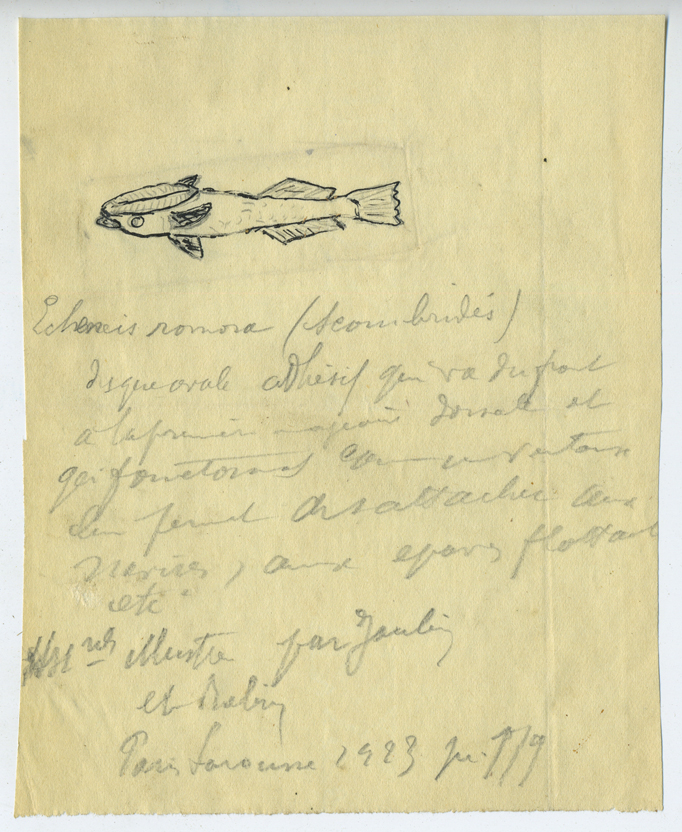 Echeneis romora (Scombridés)
disque ovale adhésif qui va du front
a la première nageoire dorsale et
qui fonctionne comme une ventouse
lui permet de s'attacher aux
navires, aux epaves flottant
etc
Hist nlle illustrée par Joubin
et Robin
Paris Larousse 1923 p.